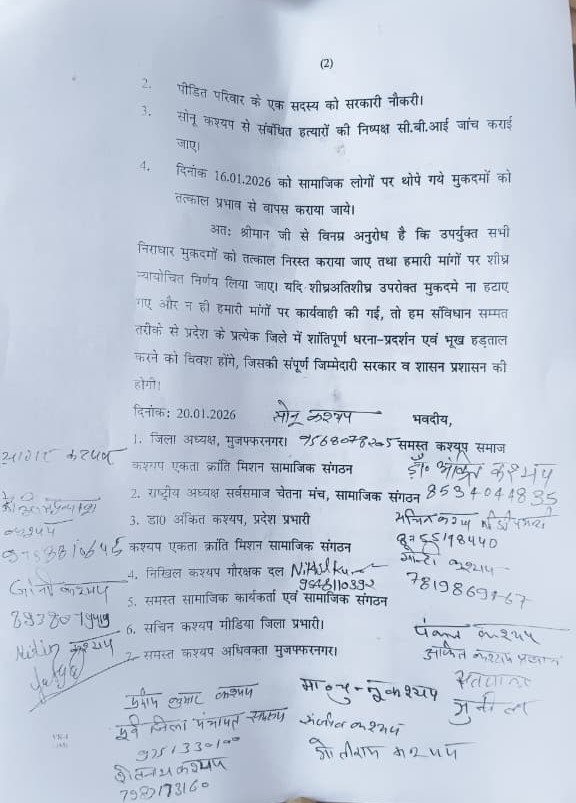 (2)
2. पीडित परिवार के एक सदस्य को सरकारी नौकरी।
3. सोनू कश्यप से संबंधित हत्यारों की निष्पक्ष सी.बी.आई जांच कराई
जाए।
4. दिनांक 16.01.2026 को सामाजिक लोगों पर थोपे गये मुकदमों को
तत्काल प्रभाव से वापस कराया जाये।
अतः श्रीमान जी से विनम्र अनुरोध है कि उपर्युक्त सभी
निराधार मुकदमों को तत्काल निरस्त कराया जाए तथा हमारी मांगों पर शीघ्र
न्यायोचित निर्णय लिया जाए। यदि शीघ्रअतिशीघ्र उपरोक्त मुकदमे ना हटाए
गए और न ही हमारी मांगों पर कार्यवाही की गई, तो हम संविधान सम्मत
तरीके से प्रदेश के प्रत्येक जिले में शांतिपूर्ण धरना-प्रदर्शन एवं भूख हड़ताल
करने को विवश होंगे, जिसकी संपूर्ण जिम्मेदारी सरकार व शासन प्रशासन की
होगी।
दिनांक: 20.01.2026 सोनू कश्यप भवदीय,
1. जिला अध्यक्ष, मुजफ्फरनगर। 9568078205 समस्त कश्यप समाज
कश्यप एकता क्रांति मिशन सामाजिक संगठन डॉ० अंकित कश्यप
2. राष्ट्रीय अध्यक्ष सर्वसमाज चेतना मंच, सामाजिक संगठन 8534044835
3. डा0 अंकित कश्यप, प्रदेश प्रभारी
कश्यप एकता क्रांति मिशन सामाजिक संगठन
4. निखिल कश्यप गौरक्षक दल
7819869767
5. समस्त सामाजिक कार्यकर्ता एवं सामाजिक संगठन
6. सचिन कश्यप मीडिया जिला प्रभारी।
7. समस्त कश्यप अधिवक्ता मुजफ्फरनगर।
सागर कश्यप
कश्यप
कश्यप
Nitin कश्यप
पंकज कश्यप
अंकित कश्यप
सुनील
कुमार कश्यप
पूर्व जिला पंचायत सदस्य
संजीव कश्यप
मोतीराम कश्यप
कश्यप